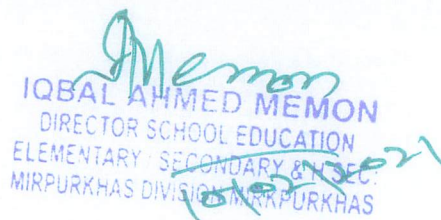 Memon
IQBAL AHMED MEMON
DIRECTOR SCHOOL EDUCATION
ELEMENTARY SECONDARY & H SEC:
MIRPURKHAS DIVISION MIRPURKHAS